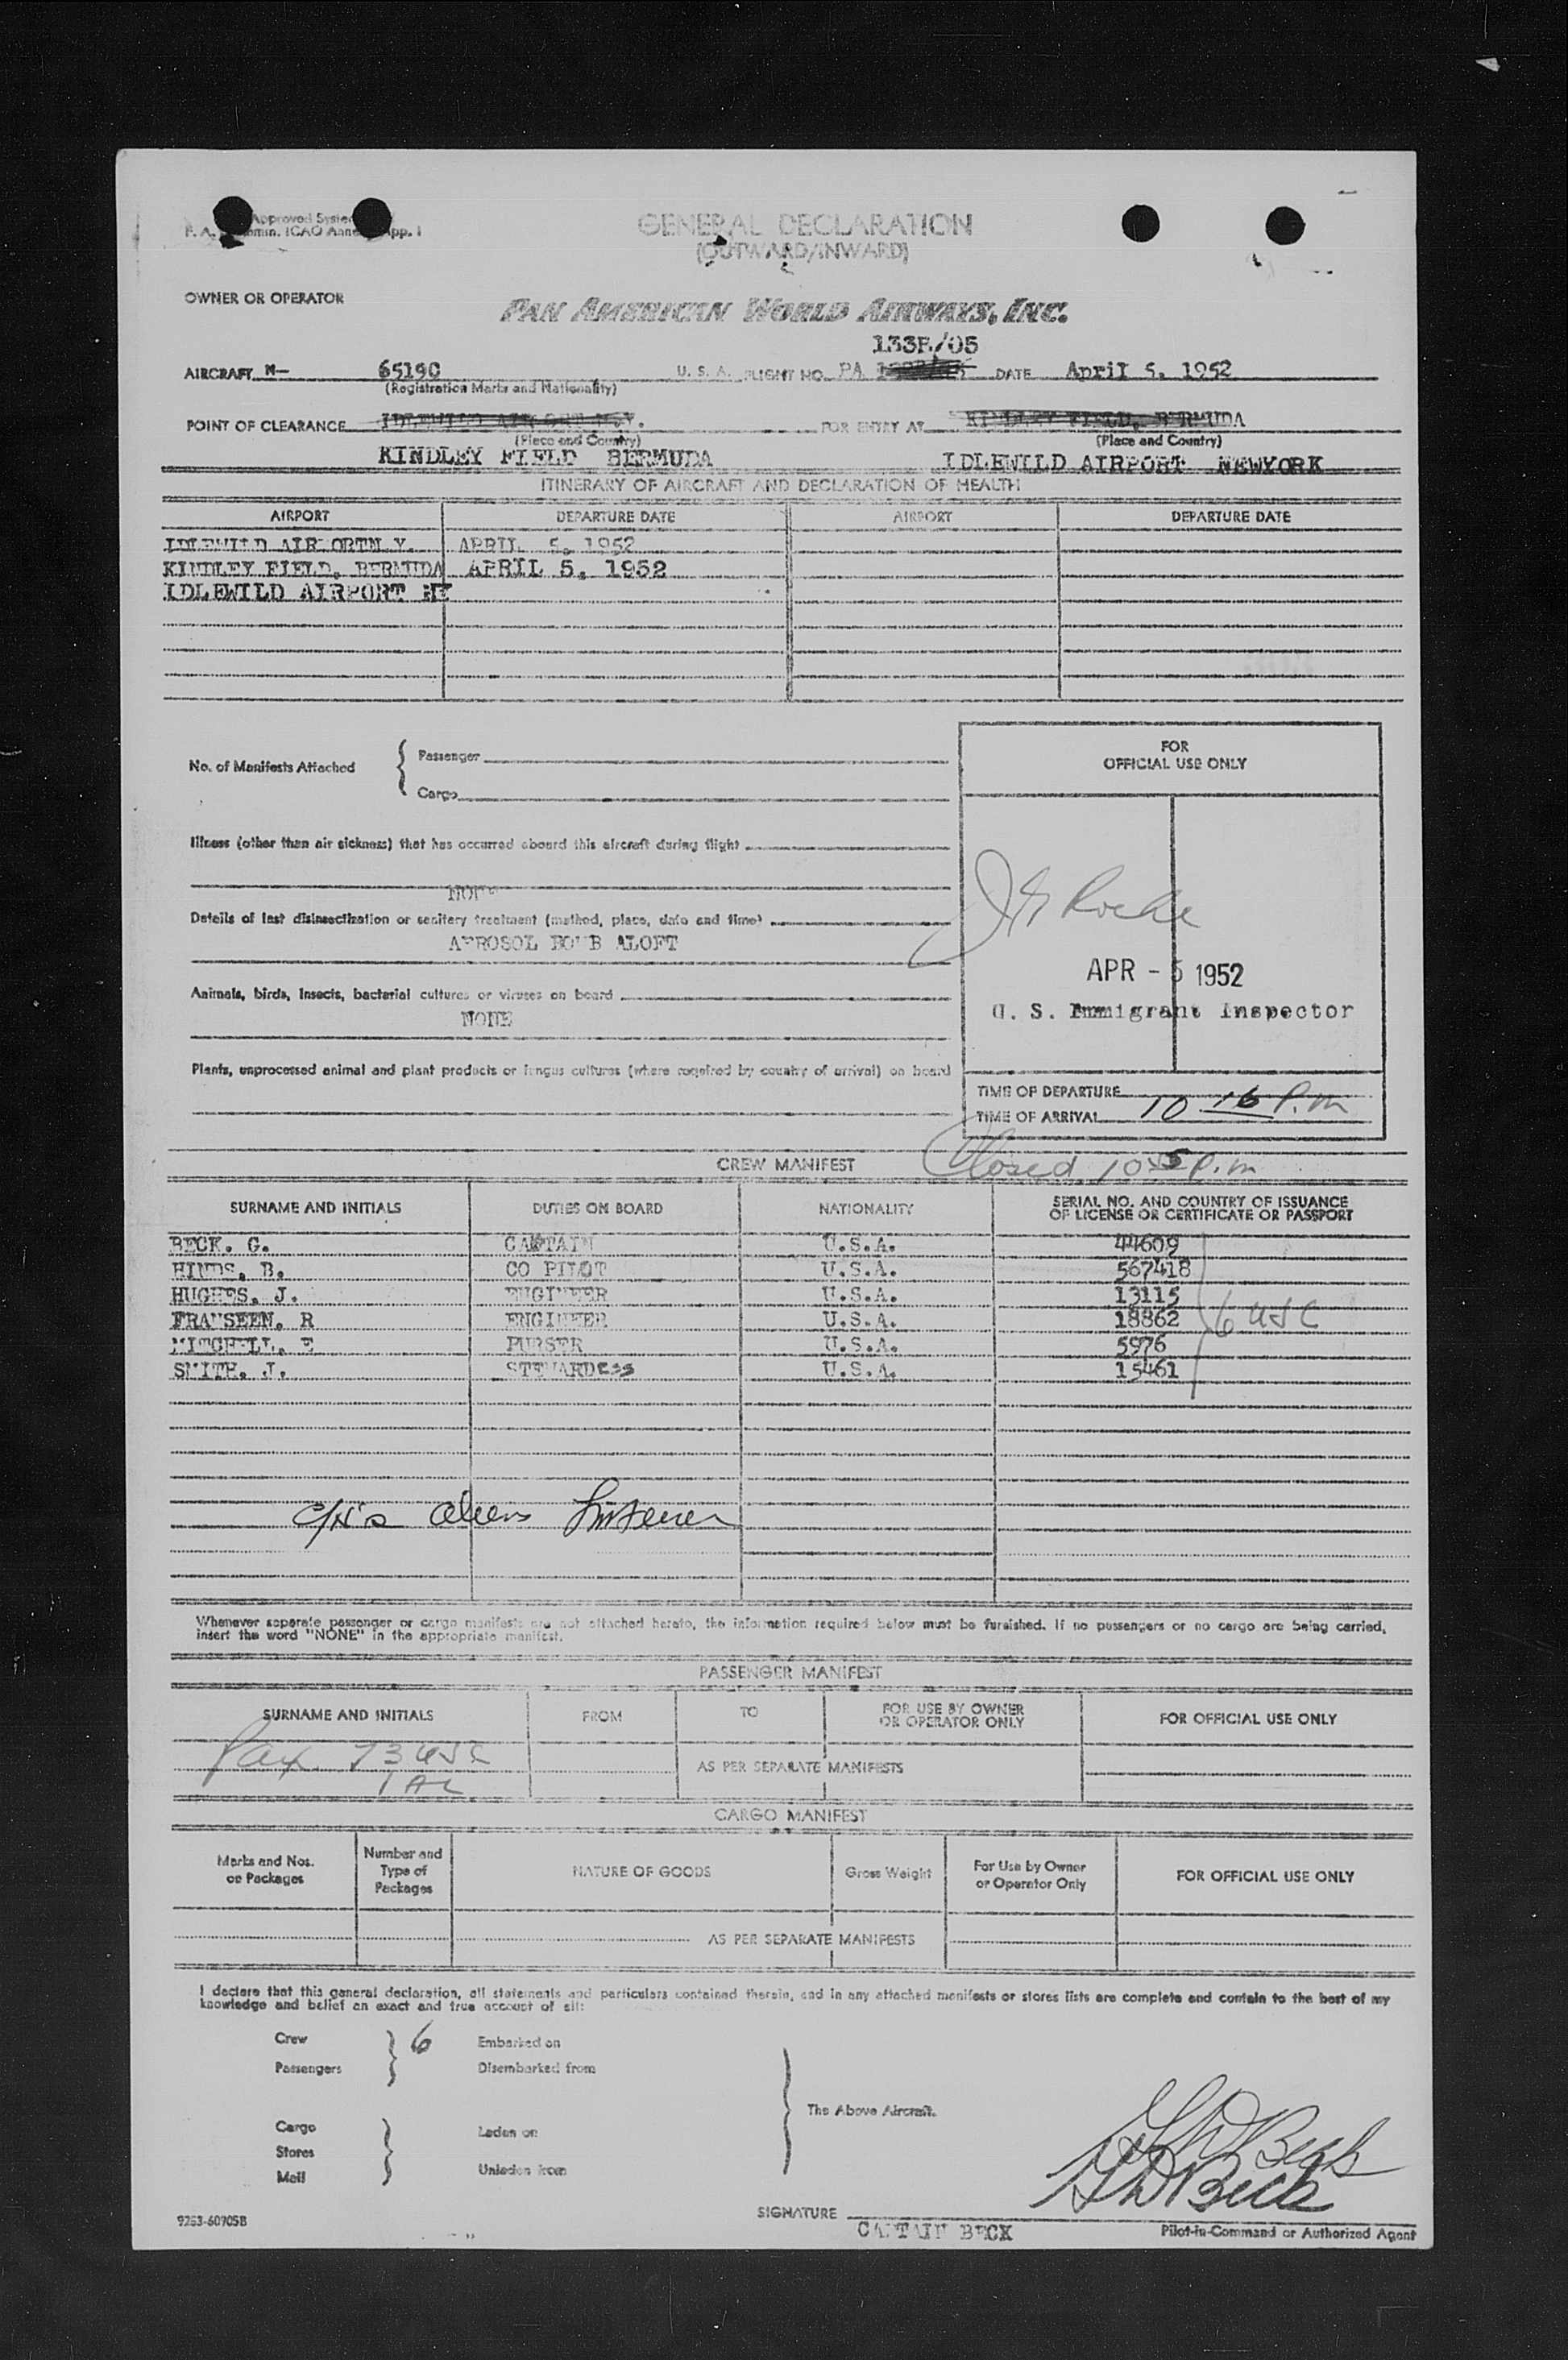 Approved System
GENERAL DECLARATION
(OUTWARD/INWARD)
OWNER OR OPERATOR
PAN AMERICAN WORLD AIRWAYS, INC.
133B/05
AIRCRAFT N- 65190 U. S. A. FLIGHT NO. PA DATE April 5, 1952
(Registration Marks and Nationality)
POINT OF CLEARANCE IDLEWILD AIRPORT N.Y. FOR ENTRY AT KINDLEY FIELD, BERMUDA
(Place and Country) (Place and Country)
KINDLEY FIELD BERMUDA IDLEWILD AIRPORT NEWYORK
ITINERARY OF AIRCRAFT AND DECLARATION OF HEALTH
AIRPORT DEPARTURE DATE AIRPORT DEPARTURE DATE
IDLEWILD AIRPORTN.Y. APRIL 5, 1952
KINDLEY FIELD, BERMUDA APRIL 5, 1952
IDLEWILD AIRPORT NY
No. of Manifests Attached { Passenger
Cargo
FOR
OFFICIAL USE ONLY
Illness (other than air sickness) that has occurred aboard this aircraft during flight
NONE
Details of last disinsectization or sanitary treatment (method, place, date and time)
AEROSOL BOMB ALOFT
Roche
APR - 5 1952
U. S. Immigrant Inspector
Animals, birds, insects, bacterial cultures or viruses on board
NONE
Plants, unprocessed animal and plant products or fungus cultures (where required by country of arrival) on board
TIME OF DEPARTURE
TIME OF ARRIVAL 10 16 P.m
CREW MANIFEST Closed 1045 P.m
SURNAME AND INITIALS DUTIES ON BOARD NATIONALITY SERIAL NO. AND COUNTRY OF ISSUANCE
OF LICENSE OR CERTIFICATE OR PASSPORT
BECK. G. CAPTAIN U.S.A. 44609
HINDS, B. CO PILOT U.S.A. 567418
HUGHES, J. ENGINEER U.S.A. 13115
FRANSEEN, R ENGINEER U.S.A. 18862 6 USC
MITCHELL, E PURSER U.S.A. 5976
SMITH, J. STEWARDess U.S.A. 15461
Whenever separate passenger or cargo manifests are not attached hereto, the information required below must be furnished. If no passengers or no cargo are being carried,
insert the word "NONE" in the appropriate manifest.
PASSENGER MANIFEST
SURNAME AND INITIALS FROM TO FOR USE BY OWNER
OR OPERATOR ONLY FOR OFFICIAL USE ONLY
Pax 73 USC
1 AL
AS PER SEPARATE MANIFESTS
CARGO MANIFEST
Marks and Nos.
on Packages Number and
Type of
Packages NATURE OF GOODS Gross Weight For Use by Owner
or Operator Only FOR OFFICIAL USE ONLY
AS PER SEPARATE MANIFESTS
I declare that this general declaration, all statements and particulars contained therein, and in any attached manifests or stores lists are complete and contain to the best of my
knowledge and belief an exact and true account of all:
Crew 6 Embarked on
Passengers Disembarked from
The Above Aircraft.
Cargo Laden on
Stores
Mail Unladen from
G W Beck
G W Beck
SIGNATURE
CAPTAIN BECK Pilot-in-Command or Authorized Agent
9253-60905B